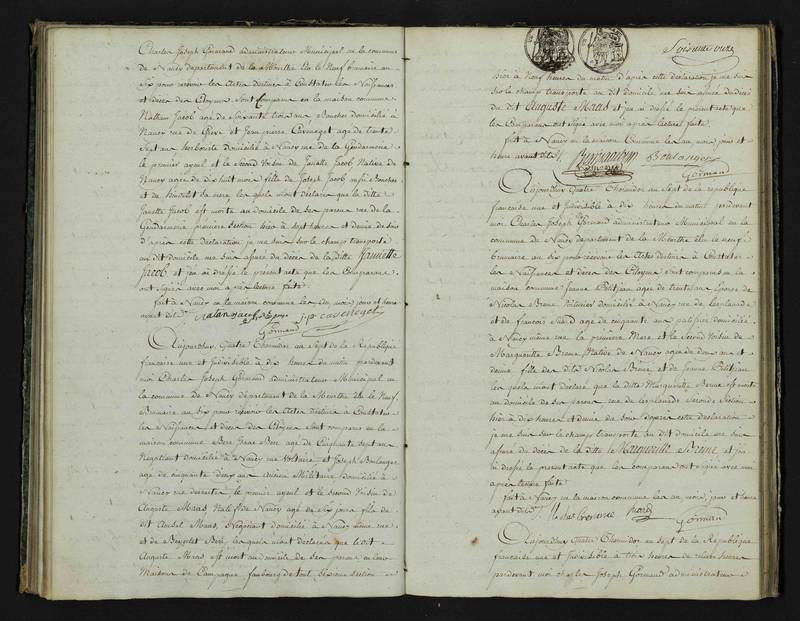 Charles Joseph Gormand administrateur Municipal en la commune
de Nancy departement de la Meurthe élu le neuf brumaire an
Six pour recevoir les Actes destinés à Constater les Naissances
et décès des Citoyens sont comparus en la maison commune
Nathan Jacob agé de soixante trois ans Boucher domicilié à
Nancy rue de Grève et Jean pierre Cavenegot agé de trente
Sept ans herboriste domicilié à Nancy rue de la Gendarmerie
le premier ayeul et le second Voisin de Janette Jacob Native de
Nancy agée de dix huit mois fille de Joseph Jacob aussi Boucher
et de sa mère, lesquels m'ont déclaré que la ditte
Janette Jacob est morte au domicile de ses parens rue de la
Gendarmerie première Section hier à sept heures et demie du soir
d'après cette déclaration je me suis sur le champ transporté
au dit domicile me suis assuré du décès de la ditte Jannette
Jacob et j'en ai dressé le présent acte que les Comparans
ont signés avec moi après lecture faite
fait à Nancy en la maison commune les an, mois, jour et heure
avant dits
j.p. cavenegot
Gormand
Aujourdhuy Quatre Thermidor an Sept de la République
francaise une et Indivisible à dix heures du matin pardevant
moi Charles Joseph Gormand administrateur Municipal en
la commune de Nancy departement de la Meurthe élu le neuf
Brumaire an six pour recevoir les Actes destinés à Constater
les Naissances et décès des Citoyens sont comparus en la
maison commune Bere Isaac Bere agé de Cinquante sept ans
Négotiant domicilié à Nancy rue Voltaire et Joseph Boulanger
agé de cinquante deux ans ancien Militaire domicilié à
Nancy rue le premier ayeul et le second Voisin de
Auguste Maas Natif de Nancy agé de six jours fils de
dit Maas, Négociant domicilié à Nancy même rue
et de Beré, lesquels m'ont déclaré que le dit
Auguste Maas est mort au domicile de ses parens en leur
Maison de Campagne faubourg de toul, Sixieme section
Soixante onze
hier à neuf heures du matin d'après cette déclaration je me suis
sur le champ transporté au dit domicile me suis assuré du décès
du dit Auguste Maas et j'en ai dressé le présent acte que
les Comparans ont signé avec moi après lecture faite
fait à Nancy en la maison Commune les an, mois, jour et
heure avant dits
Boulanger
Gormand
Aujourdhuy Quatre Thermidor an Sept de la république
francaise une et Indivisible à dix heures du matin pardevant
moi Charles Joseph Gormand administrateur Municipal en la
commune de Nancy departement de la Meurthe élu le neuf
brumaire an six pour recevoir les Actes destinés à Constater
les Naissances et décès des Citoyens sont comparus en la
maison commune Jeanne Petitjean agée de trente ans épouse de
Nicolas Brune domicilié à Nancy rue de l'esplanade
et de francois Nord agé de cinquante ans patissier domicilié
à Nancy même rue la première Mere et le second Voisin de
Marguerite Brune, Native de Nancy agée de deux ans et
demie fille du dit Nicolas Brune, et de Jeanne Petitjean
lesquels m'ont déclaré que la ditte Marguerite Brune est morte
au domicile de ses parens rue de l'esplanade seconde Section
hier à dix heures et demie du soir d'après cette déclaration
je me suis sur le champ transporté au dit domicile me suis
assuré du décès de la ditte Marguerite Brune, et j'en
ai dressé le présent acte que les comparans ont signés avec moi
après lecture faite
fait à Nancy en la maison commune les an, mois, jour et heure
avant dits
Gormand
Aujourdhuy Quatre Thermidor an sept de la République
francaise une et indivisible à trois heures de relevée
pardevant moi charles Joseph Gormand administrateur